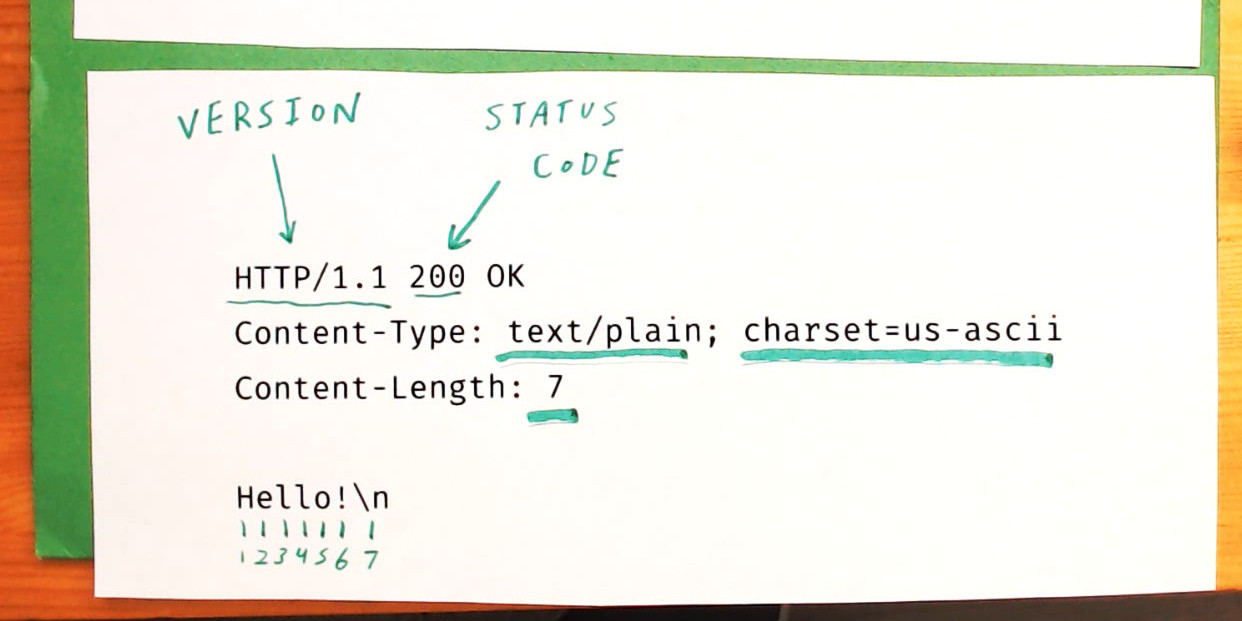 VERSION
STATUS
CODE
HTTP/1.1 200 OK
Content-Type: text/plain; charset=us-ascii
Content-Length: 7
Hello!\n
1 2 3 4 5 6 7